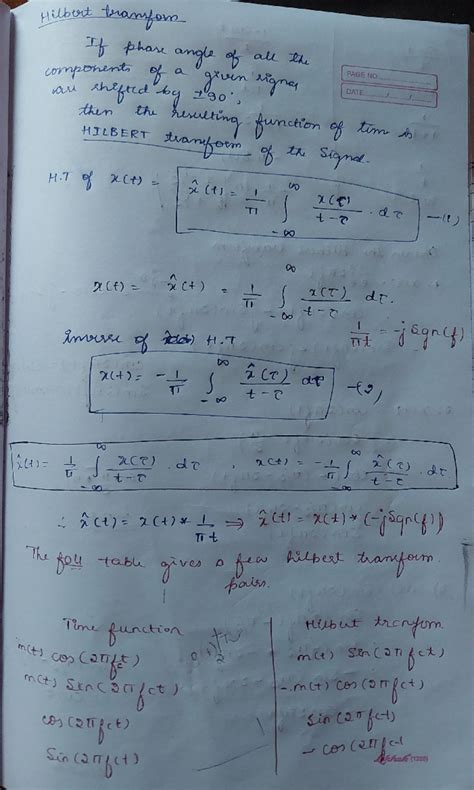 Hilbert transform
If phase angle of all the
components of a given signal
are shifted by ±90°,
PAGE NO.
DATE: / /
then the resulting function of tim is
HILBERT transform of th Signal.
H.T of x(t) = x̂(t) = 1/π ∫_{-∞}^{∞} x(τ)/(t-τ) · dτ —(1)
x(t) = x̂(t) = 1/π ∫_{-∞}^{∞} x(τ)/(t-τ) dτ.
1/πt = -j Sgn(f)
Inverse of H.T
x(t) = -1/π ∫_{-∞}^{∞} x̂(τ)/(t-τ) dτ —(2)
x̂(t) = 1/π ∫_{-∞}^{∞} x(τ)/(t-τ) · dτ , x(t) = -1/π ∫_{-∞}^{∞} x̂(τ)/(t-τ) · dτ
∴ x̂(t) = x(t) * 1/πt ⇒ x̂(t) = x(t) * (-j Sgn(f))
The foll table gives a few hilbert transform
pairs.
Time function Hilbert tranform
m(t) cos(2πfct) m(t) Sin(2πfct)
m(t) Sin(2πfct) -m(t) cos(2πfct)
cos(2πfct) Sin(2πfct)
Sin(2πfct) - cos(2πfct